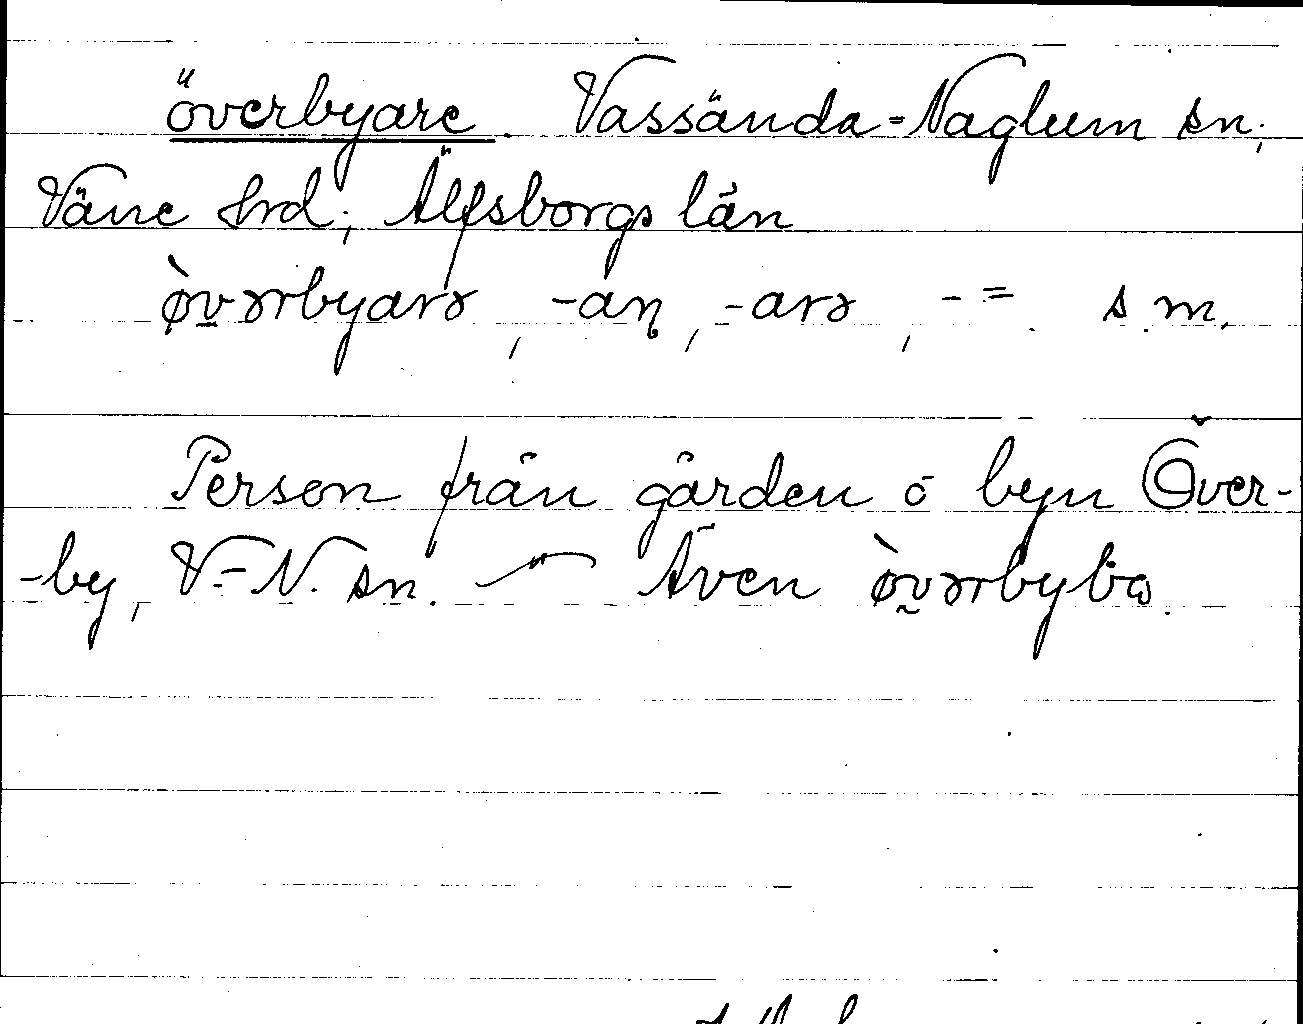 överbyare. Vassända-Naglum sn;
Väne hrd; Älfsborgs län
ø̀vərbyarə, -aŋ, -arə, -= s.m.
Person från gården o byn Över-
-by, V.-N. sn. — Även ø̀vərbybω.